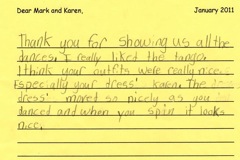 Dear Mark and Karen, January 2011
Thank you for showing us all the
dances. I really liked the tango.
I think your outfits were really nice.
Especially your dress' Karen. The
dress' moved so nicely as you
danced and when you spin it looks
nice.